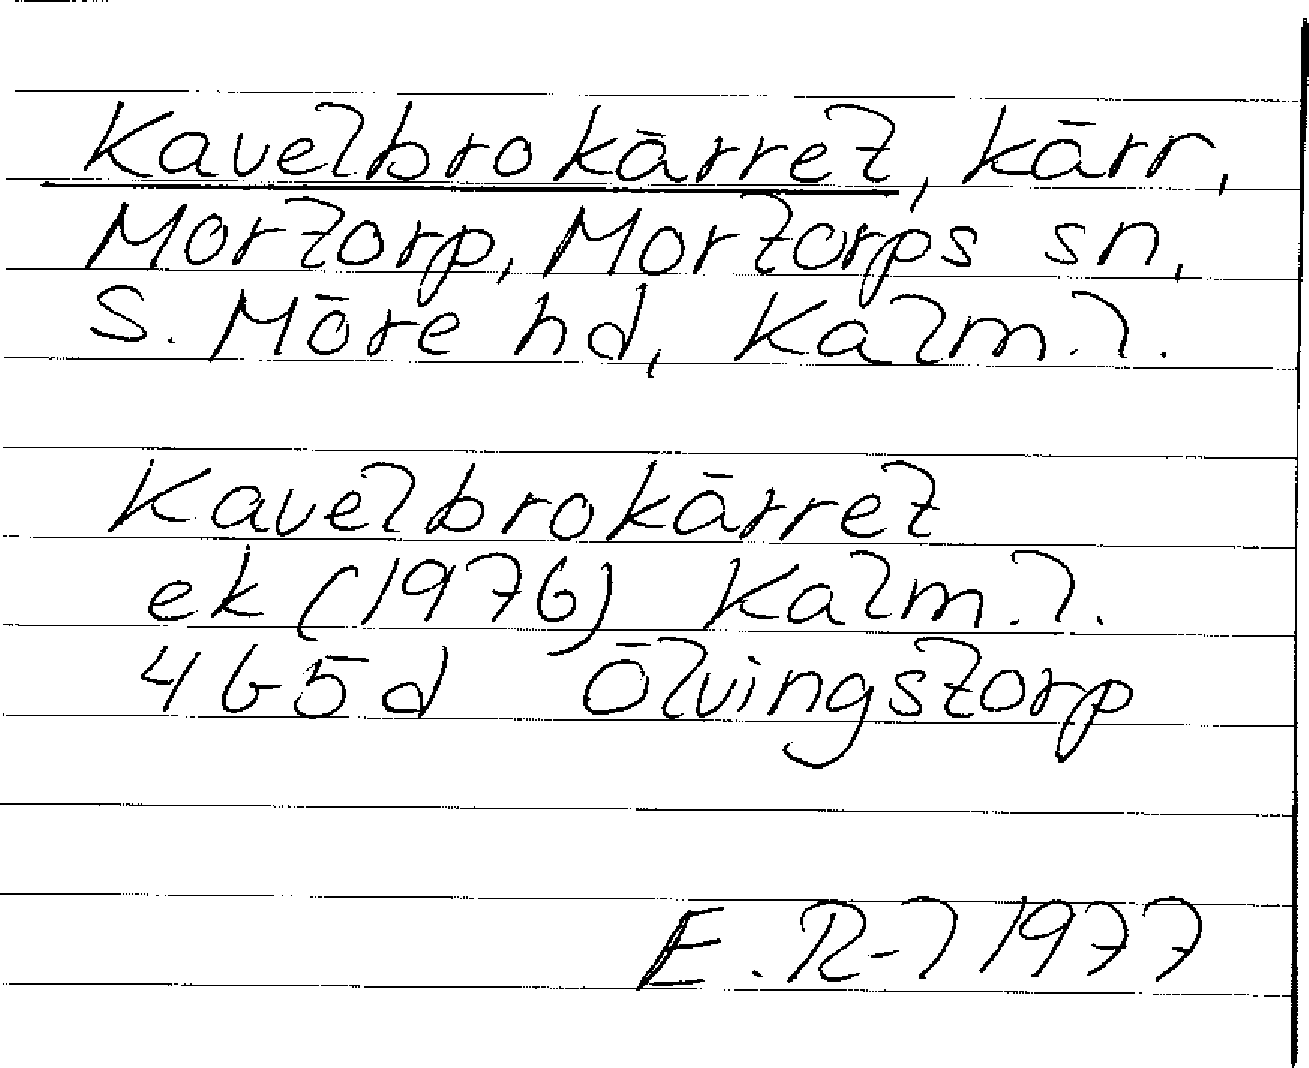 Kavelbrokärret, kärr,
Mortorp, Mortorps sn,
S. Möre hd, Kalm. l.
Kavelbrokärret
ek (1976) Kalm. l.
4 G 5 d Ölvingstorp
E. R-l 1977